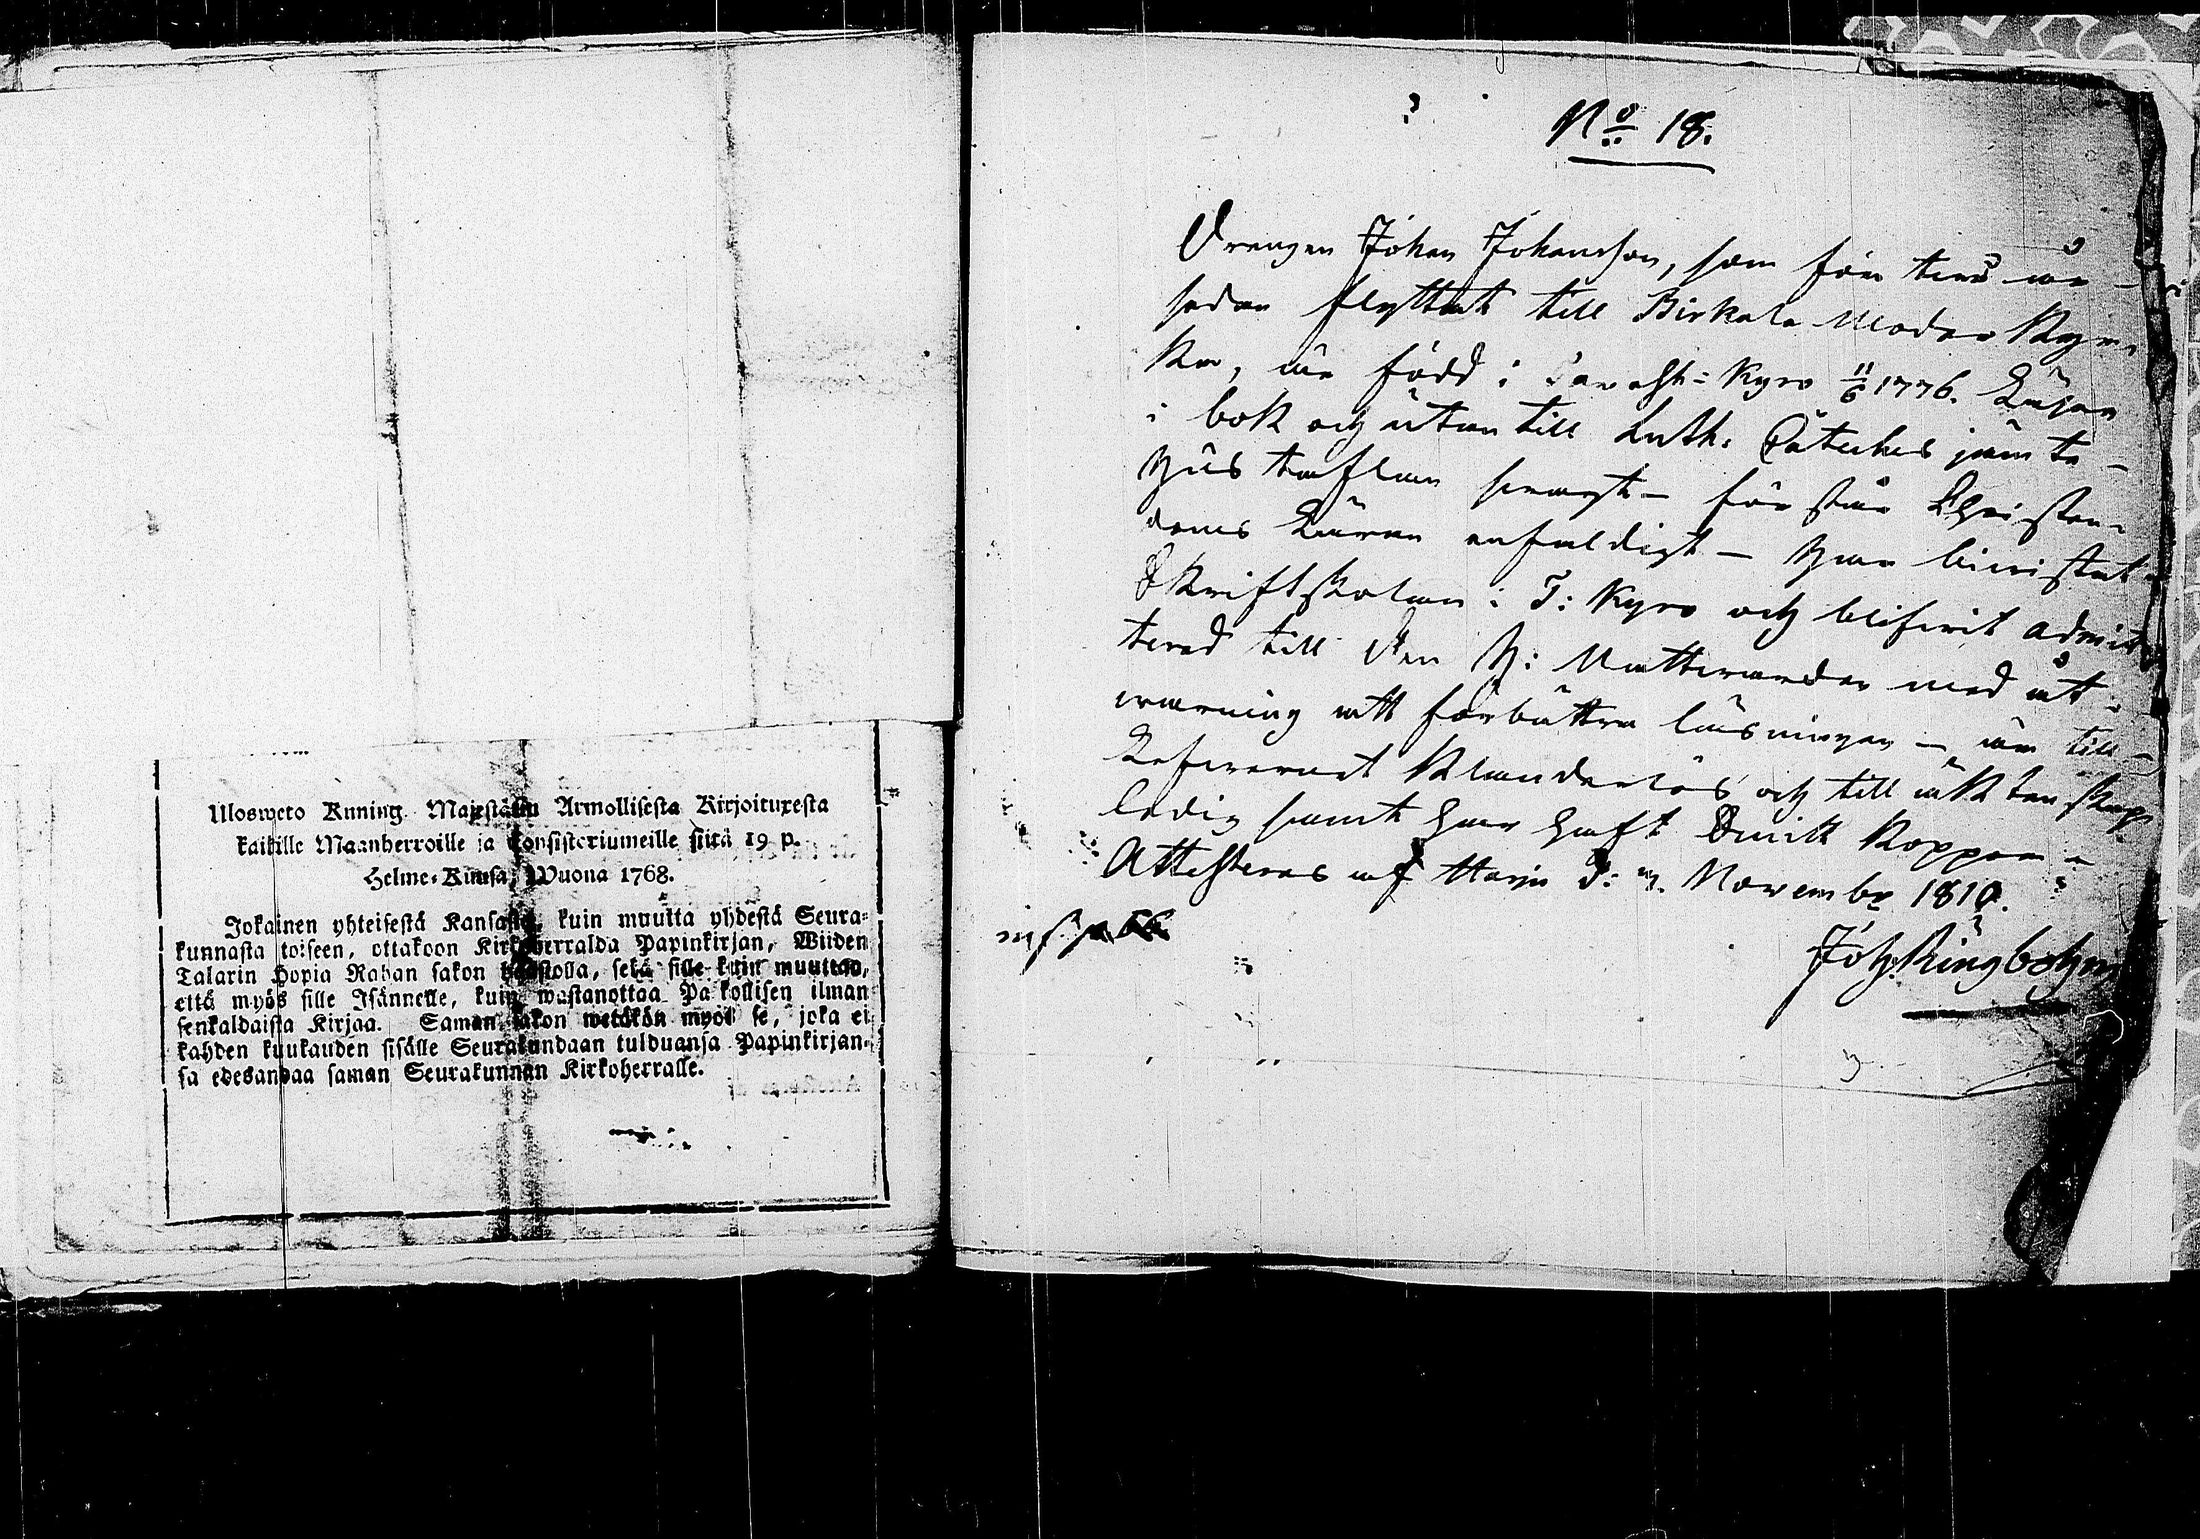 Ulosweto Kuning. Majestätin Armollisesta Kirjoituxesta
kaikille Maanherroille ja Consistoriumeille siitä 19 p.
Helme-Kuusa, Wuona 1768.
Jokainen yhteisestä Kansasta, kuin muutta yhdestä Seura-
kunnasta toiseen, ottakoon Kirkoherralda Papinkirjan, Wiiden
Talarin Hopia Rahan sakon haastolla, sekä sille kuin muuttaa,
että myös sille Isännelle, kuin wastanottaa Palkollisen ilman
senkaldaista Kirjaa. Saman sakon wetäkön myös se, joka ei
kahden kuukauden sisälle Seurakundaan tulduansa Papinkirjan-
sa edesandaa saman Seurakunnan Kirkoherralle.
No 18.
Drengen Johan Johansson, som för tu år
sedan flyttat till Birkala Moder Kyr-
ka, är född i Tavast-Kyro 11/6 1776. Läser
i bok och utan till Luth. Cateches jämte
Hus taflan svagt – förstår Christen-
doms Läran enfaldigt – Har bivistat
Skriftskolan i T: Kyro och blifvit admit-
terad till den H: Nattvarden med åt-
varning att förbättra läsningen – är till
Lefvernet klanderlös och till äktenskap
ledig samt har haft Smitt Koppor
Attesteras af Harju d: 7. Novembr 1810.
Joh Ringbohm